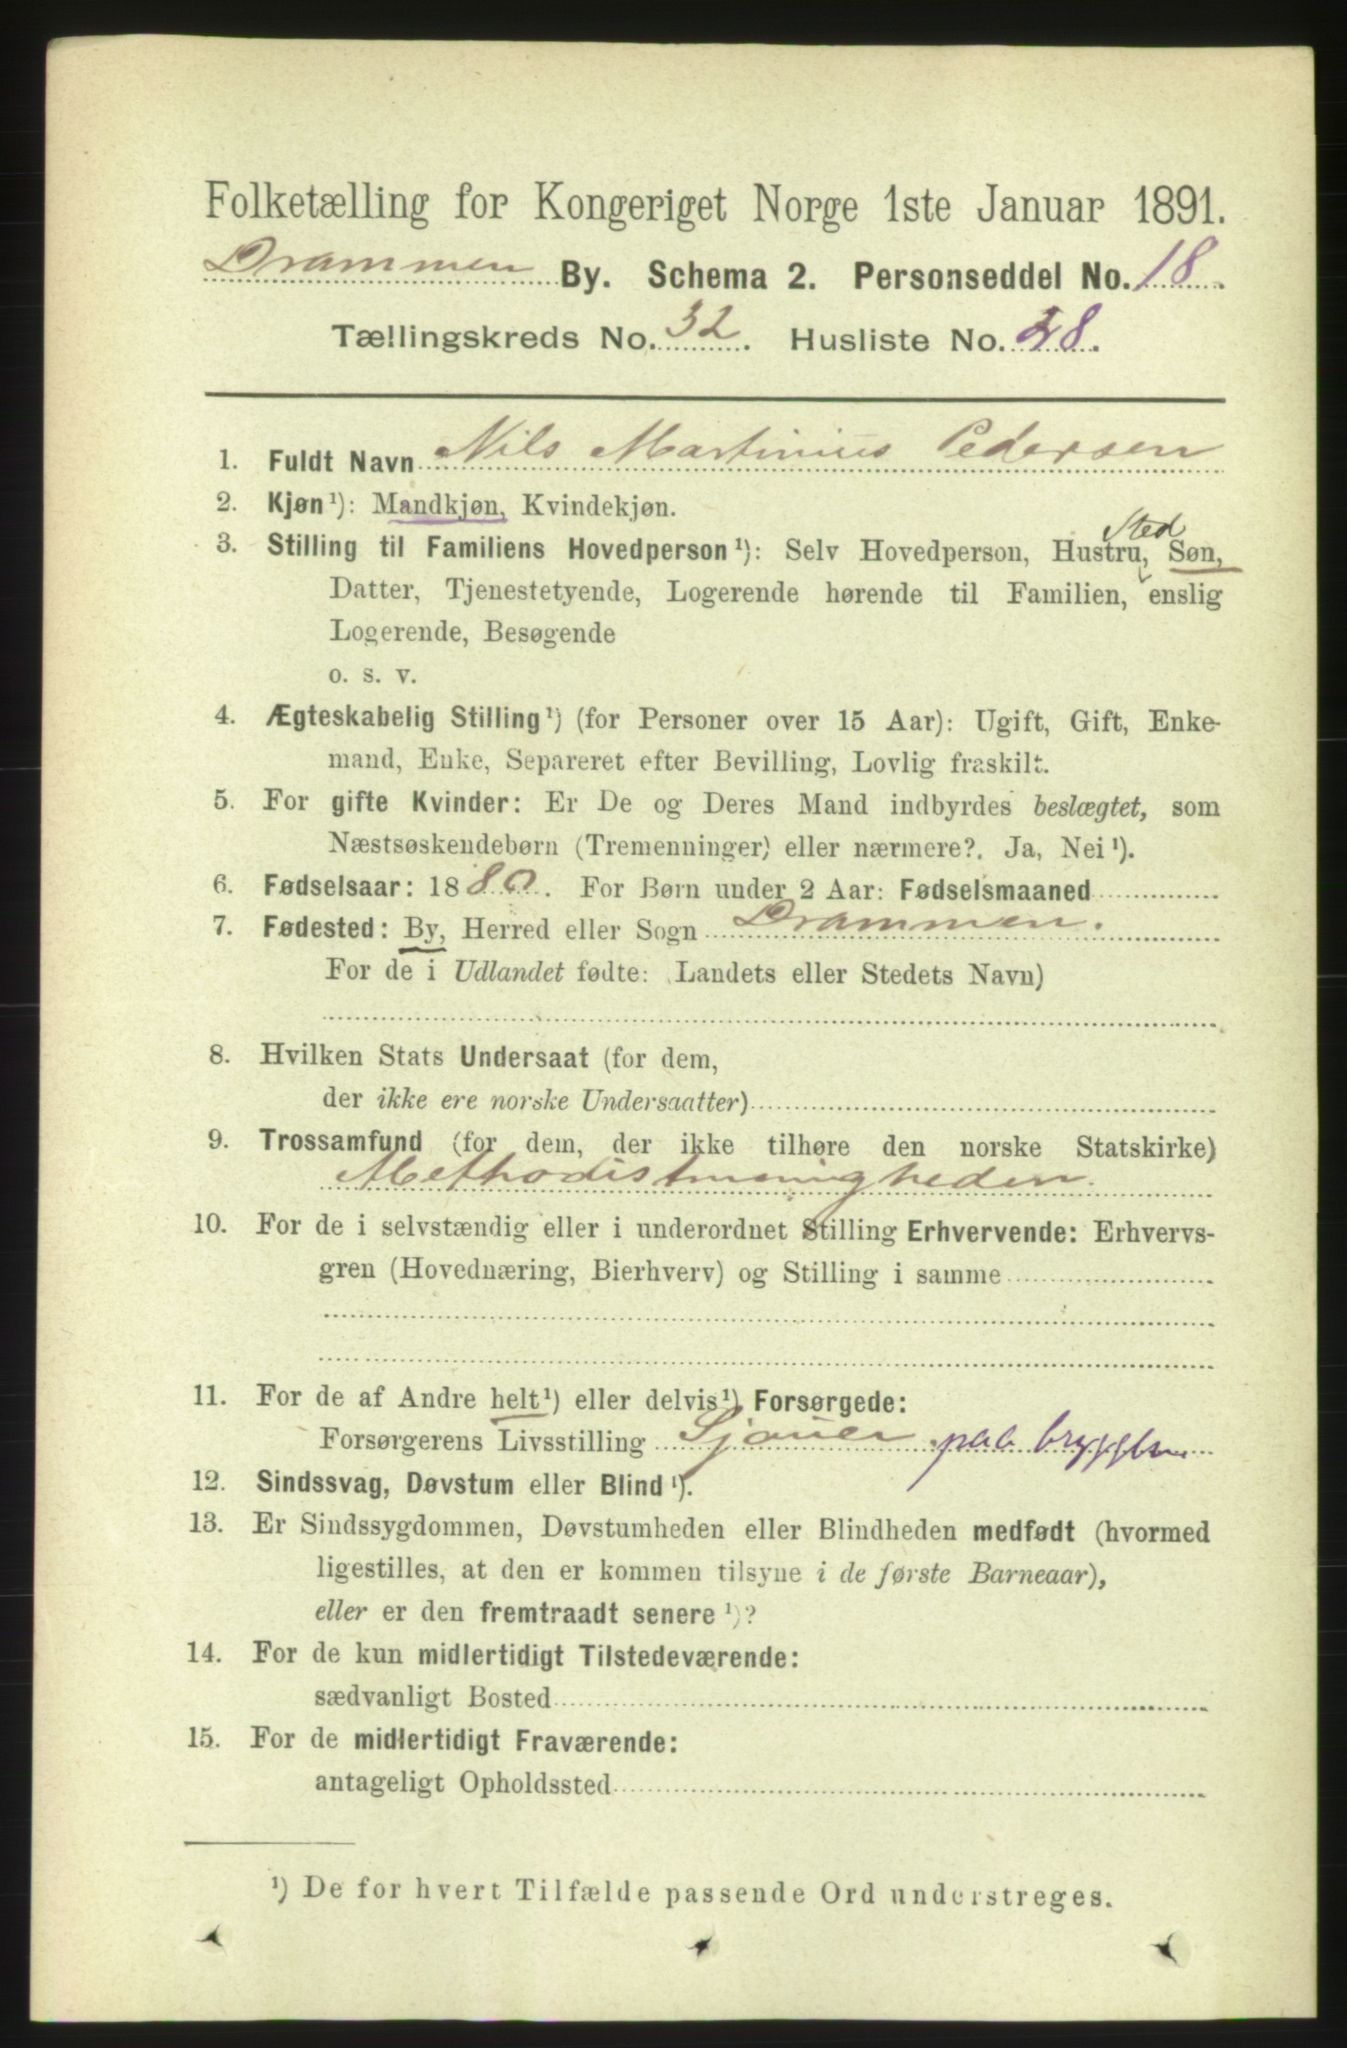 Folketælling for Kongeriget Norge 1ste Januar 1891.
Drammen By. Schema 2. Personseddel No. 18.
Tællingskreds No. 32. Husliste No. 28.
1. Fuldt Navn Nils Martinius Pedersen
2. Kjøn¹): Mandkjøn, Kvindekjøn.
Sted
3. Stilling til Familiens Hovedperson¹): Selv Hovedperson, Hustru, Søn,
Datter, Tjenestetyende, Logerende hørende til Familien, enslig
Logerende, Besøgende
o. s. v.
4. Ægteskabelig Stilling¹) (for Personer over 15 Aar): Ugift, Gift, Enke-
mand, Enke, Separeret efter Bevilling, Lovlig fraskilt.
5. For gifte Kvinder: Er De og Deres Mand indbyrdes beslægtet, som
Næstsøskendebørn (Tremenninger) eller nærmere?. Ja, Nei¹).
6. Fødselsaar: 1880. For Børn under 2 Aar: Fødselsmaaned
7. Fødested: By, Herred eller Sogn Drammen.
For de i Udlandet fødte: Landets eller Stedets Navn)
8. Hvilken Stats Undersaat (for dem,
der ikke ere norske Undersaatter)
9. Trossamfund (for dem, der ikke tilhøre den norske Statskirke)
Methodistmenigheden.
10. For de i selvstændig eller i underordnet Stilling Erhvervende: Erhvervs-
gren (Hovednæring, Bierhverv) og Stilling i samme
11. For de af Andre helt¹) eller delvis¹) Forsørgede:
Forsørgerens Livsstilling Sjauer paa bryggen
12. Sindssvag, Døvstum eller Blind¹).
13. Er Sindssygdommen, Døvstumheden eller Blindheden medfødt (hvormed
ligestilles, at den er kommen tilsyne i de første Barneaar),
eller er den fremtraadt senere¹)?
14. For de kun midlertidigt Tilstedeværende:
sædvanligt Bosted
15. For de midlertidigt Fraværende:
antageligt Opholdssted
¹) De for hvert Tilfælde passende Ord understreges.